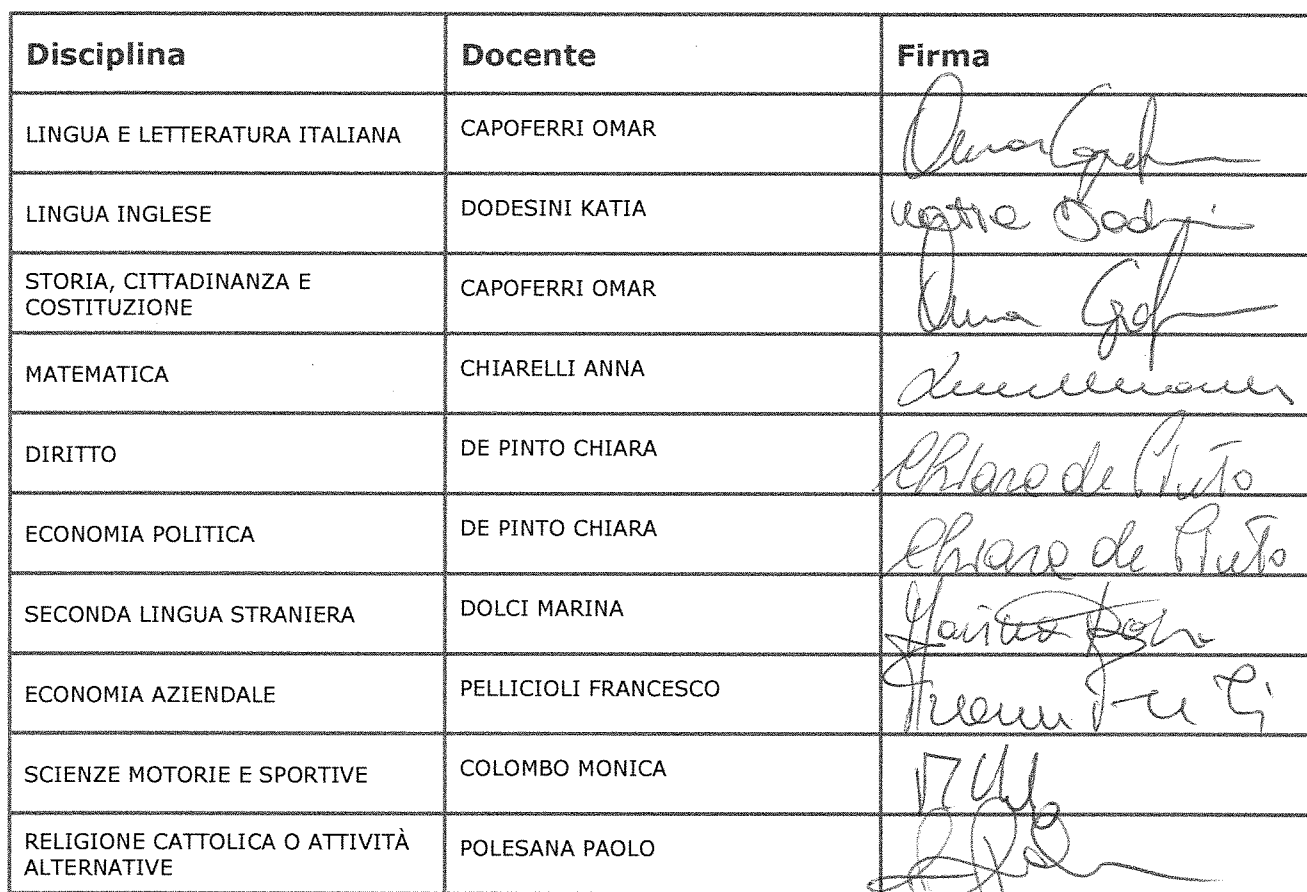 Disciplina Docente Firma
LINGUA E LETTERATURA ITALIANA CAPOFERRI OMAR
LINGUA INGLESE DODESINI KATIA Katia
STORIA, CITTADINANZA E
COSTITUZIONE CAPOFERRI OMAR
MATEMATICA CHIARELLI ANNA
DIRITTO DE PINTO CHIARA Chiara de Pinto
ECONOMIA POLITICA DE PINTO CHIARA Chiara de Pinto
SECONDA LINGUA STRANIERA DOLCI MARINA Marina
ECONOMIA AZIENDALE PELLICIOLI FRANCESCO
SCIENZE MOTORIE E SPORTIVE COLOMBO MONICA
RELIGIONE CATTOLICA O ATTIVITÀ
ALTERNATIVE POLESANA PAOLO